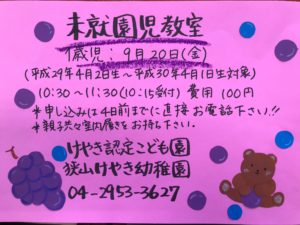 未就園児教室
1歳児：9月20日(金)
(平成29年4月2日生〜平成30年4月1日生対象)
10:30〜11:30(10:15受付) 費用 100円
*申し込みは4日前までに直接お電話下さい!!
*親子共々室内履きをお持ち下さい。
けやき認定こども園
狭山けやき幼稚園
04-2953-3627